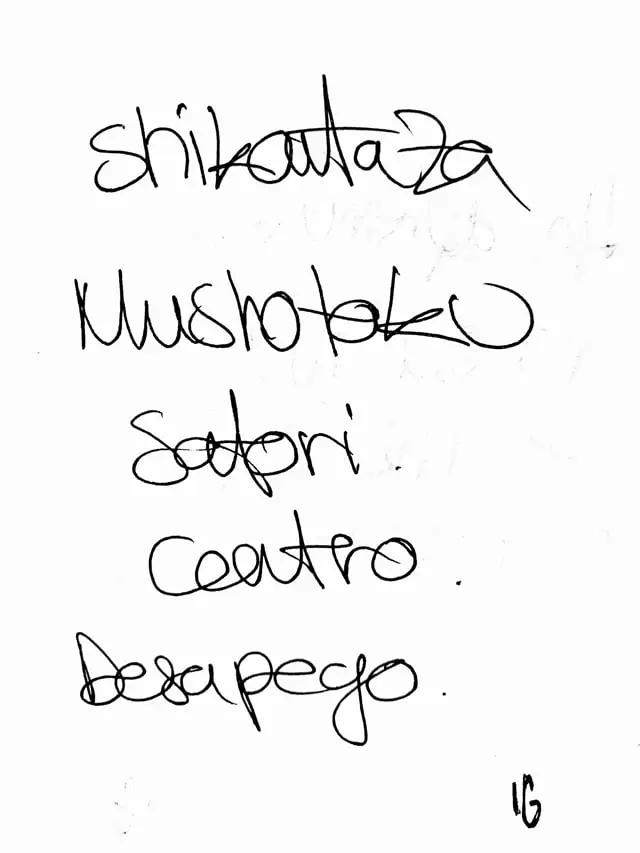 Shikantaza
Mushotoku
Satori.
Centro.
Desapego.
IG